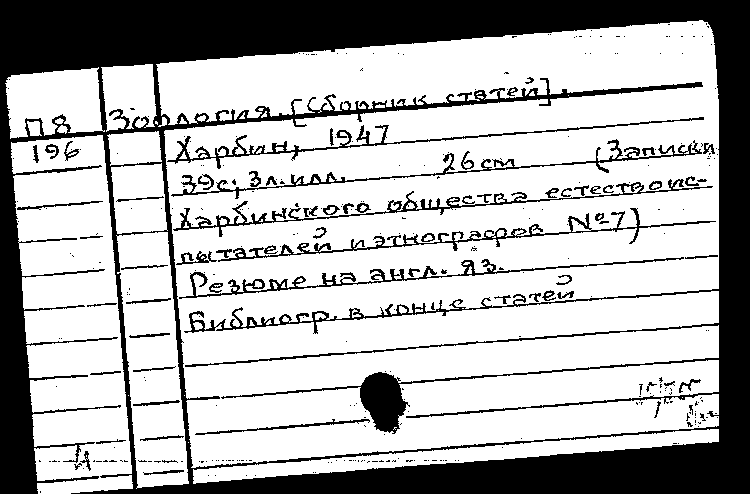 П8 Зоология. [Сборник статей].
196 Харбин, 1947
39с; 3л.илл. 26см (Записки
Харбинского общества естествоис-
пытателей и этнографов №7)
Резюме на англ. яз.
Библиогр. в конце статей